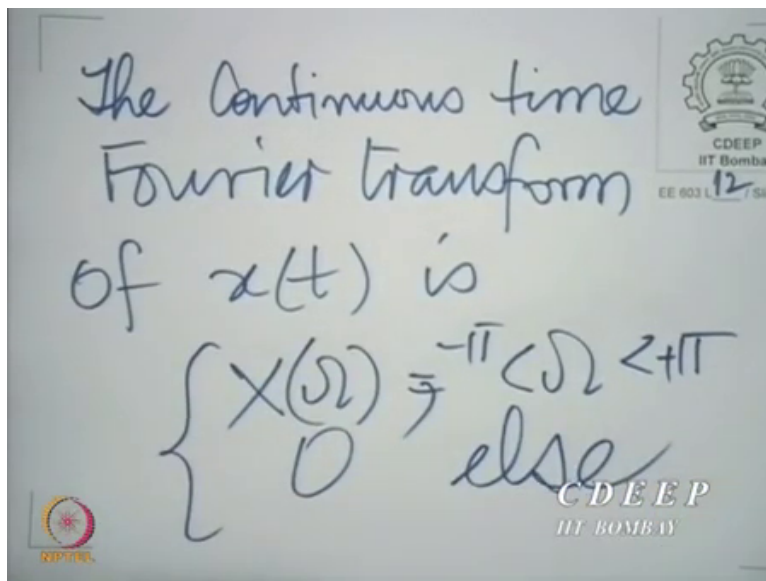 The Continuous time
Fourier transform
of x(t) is
{ X(Ω) ; -π < Ω < +π
0 else
CDEEP
IIT Bomba
EE 603 L 12 / Sl
CDEEP
IIT BOMBAY
NPTEL